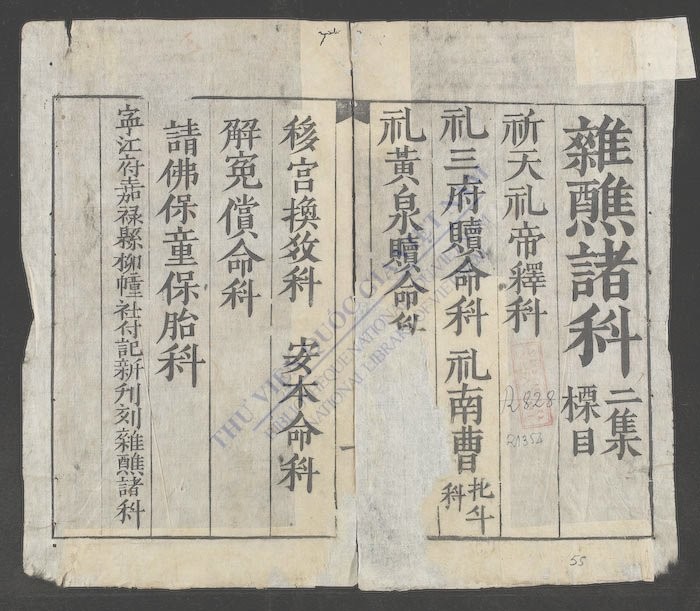 雜醮諸科 二集標目
祈天礼帝釋科
礼三府贖命科 礼南曹北斗科
礼黃泉贖命科
移宮換数科 安本命科
解冤償命科
請佛保童保胎科
寧江府嘉禄縣柳幢社付記新刋刻雜醮諸科
THƯ VIỆN QUỐC GIA VIỆT NAM
NATIONAL LIBRARY OF VIETNAM
R828
55